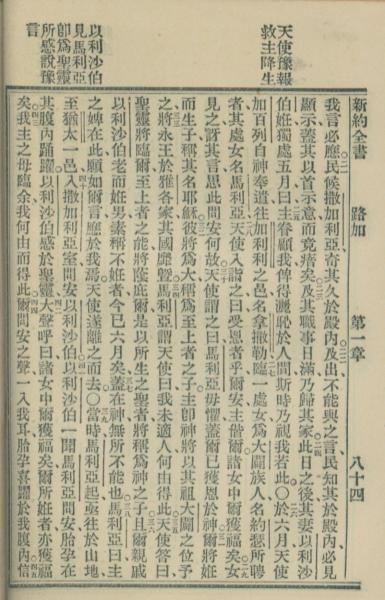 新約全書 路加 第一章 八十四
天使豫報
救主降生
我言必應民候撒加利亞奇其久於殿內及出不能與之言民知其於殿內必見
顯示蓋其以首示意而竟瘖矣及其職事日滿乃歸其家此日之後其妻以利沙
伯姙獨處五月曰主眷顧我俾得灑恥於人間斯時乃視我若此○於六月天使
加百列自神奉遣往加利利之邑名拿撒勒臨一處女爲大闢族人名約瑟所聘
者其處女名馬利亞天使入詣之曰受恩者乎爾安主偕爾諸女中爾獲福矣女
見之訝其言思此問安何故天使謂之曰馬利亞毋懼蓋爾已獲恩於神爾將姙
而生子稱其名耶穌彼將爲大稱爲至上者之子主卽神將以其祖大闢之位予
之將永王於雅各家其國靡曁馬利亞謂天使曰我未適人何由得此天使答曰
以利沙伯
見馬利亞
卽爲聖靈
所感說豫
言
聖靈將臨爾至上者之能將蔭庇爾是以所生之聖者將稱爲神之子且爾親戚
以利沙伯老而姙男素稱不姙者今已六月矣蓋在神無所不能也馬利亞曰主
之婢在此願如爾言應於我焉天使遂離之而去○當時馬利亞起亟往於山地
至猶太一邑入撒加利亞室問安以利沙伯以利沙伯一聞馬利亞問安胎孕在
其腹內踴躍以利沙伯感於聖靈大聲呼曰諸女中爾獲福矣爾所姙者亦獲福
矣我主之母臨余我何由而得此爾問安之聲一入我耳胎孕喜躍於我腹內信